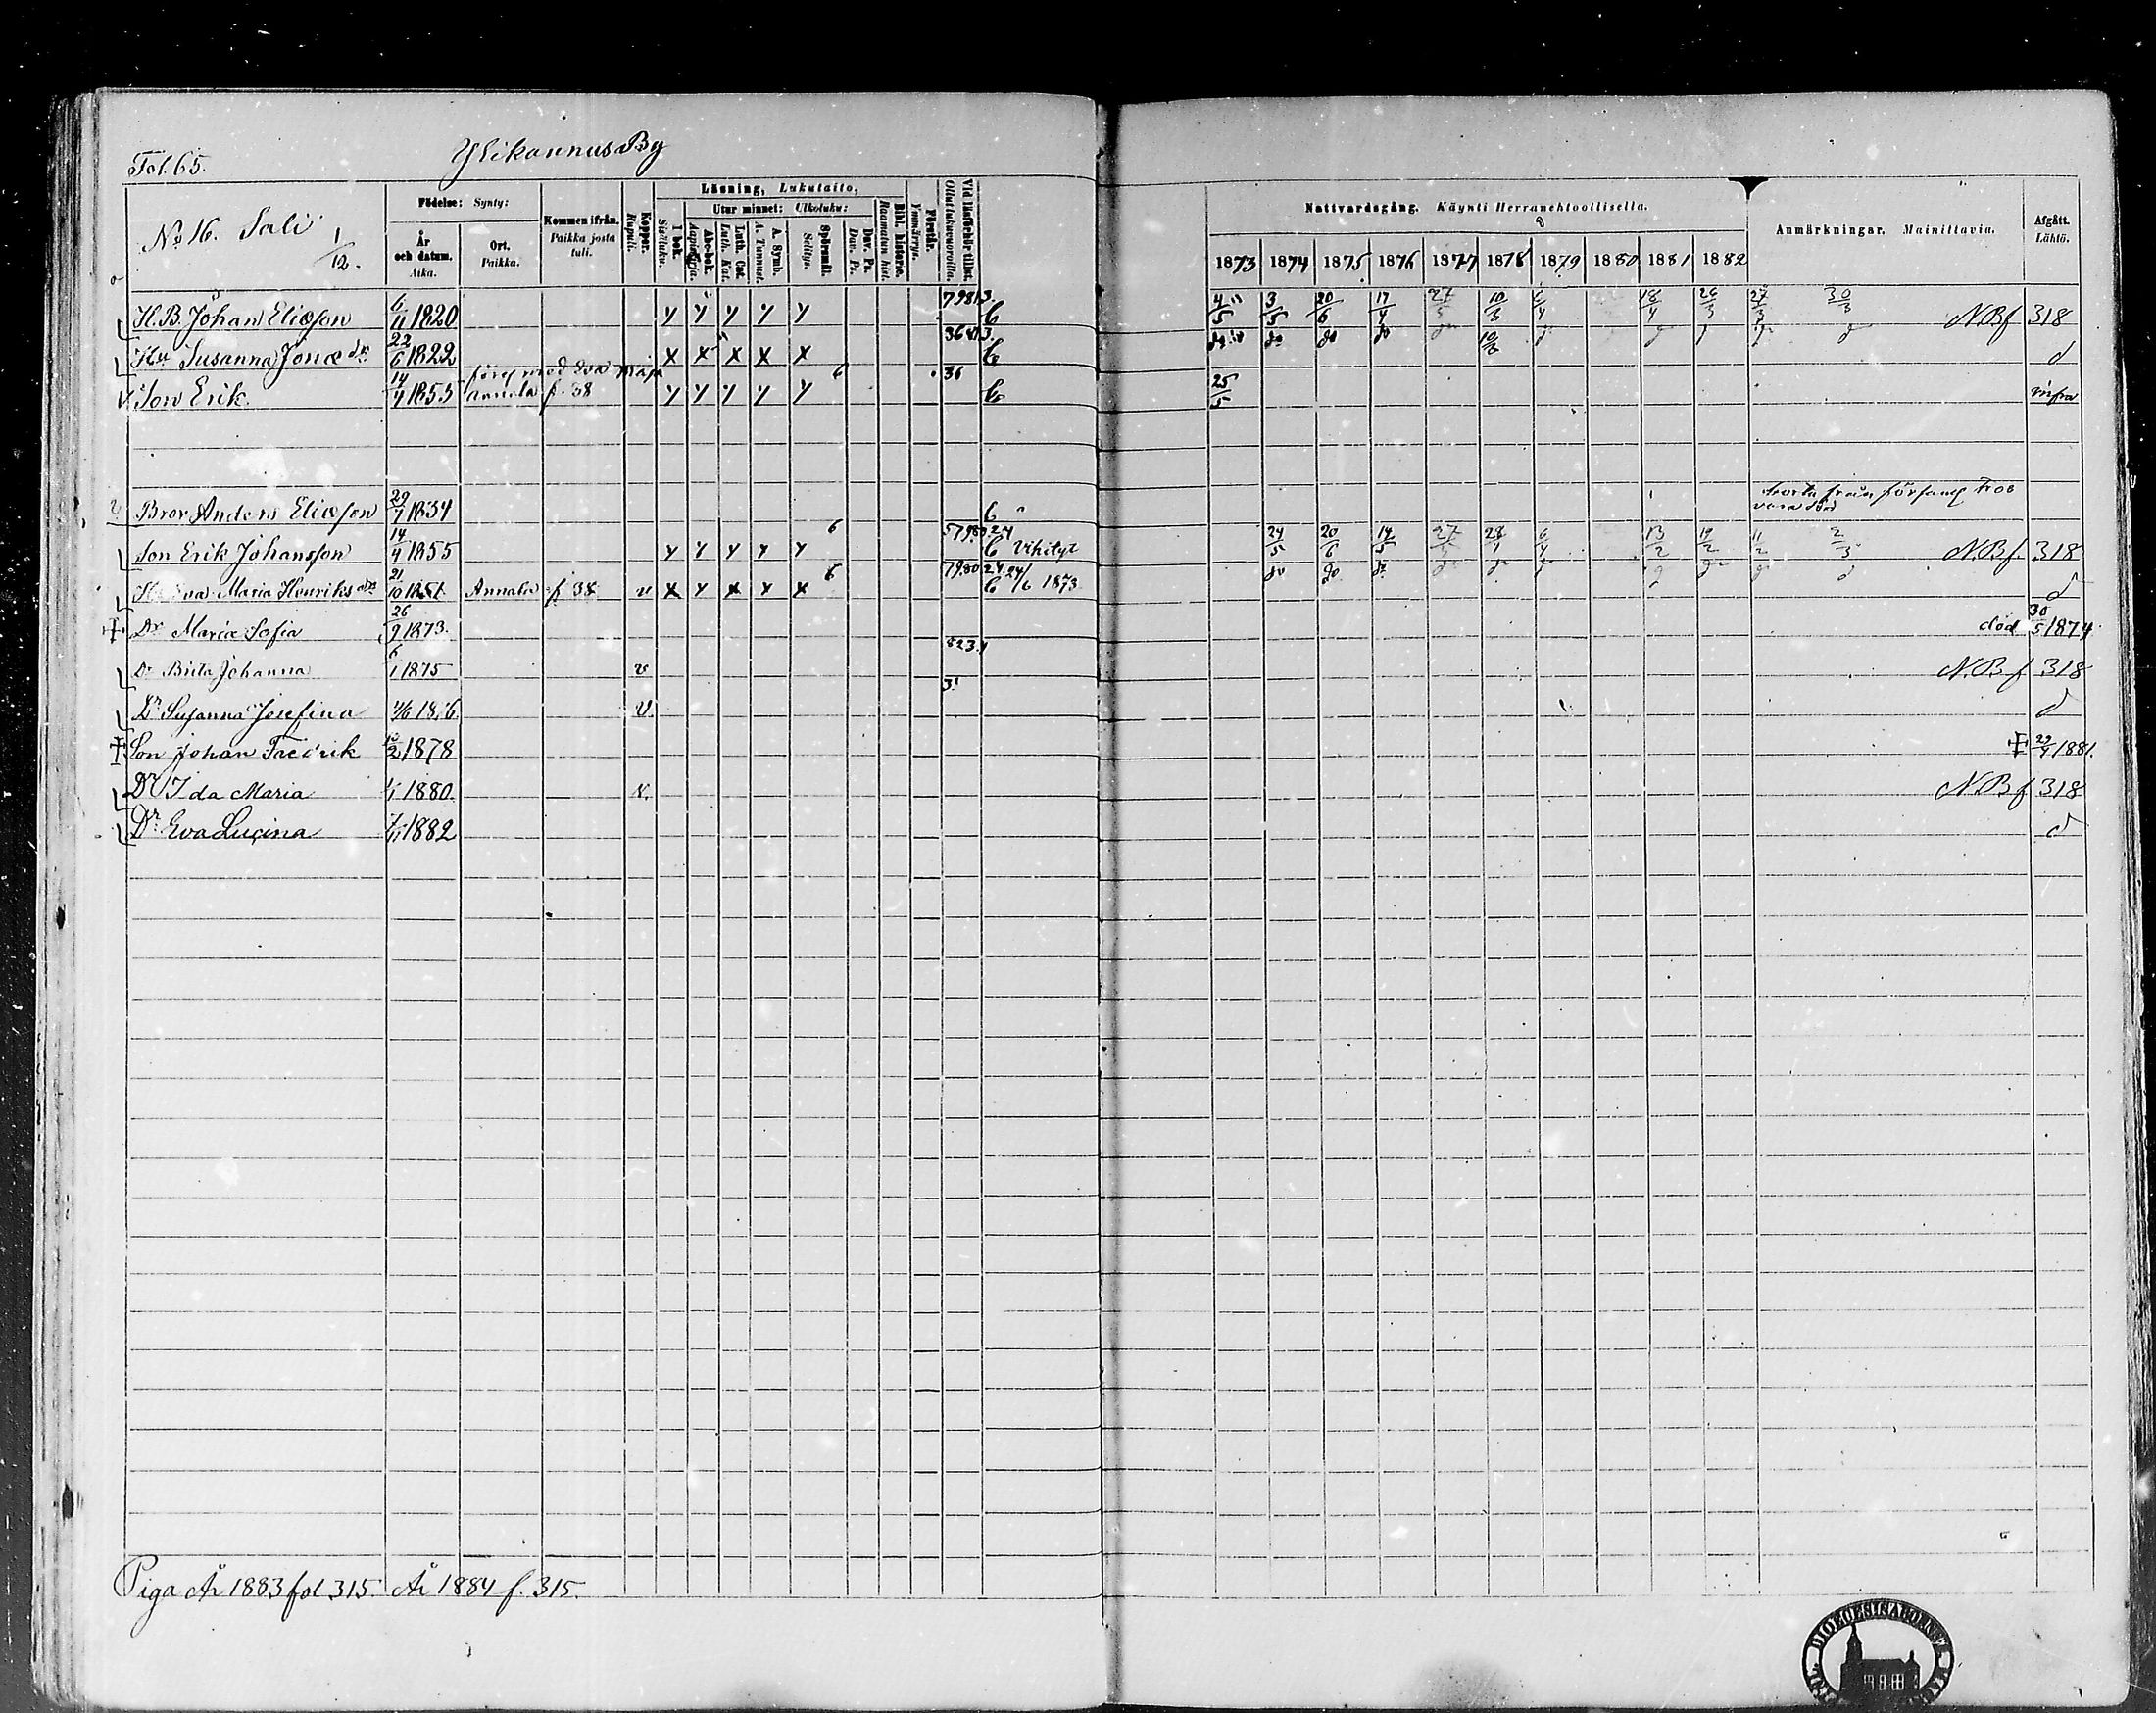 Fol. 65.
Ylikannus By
No 16. Sali 1/12.
Födelse: Synty:
År och datum. Aika.
Ort. Paikka.
Kommen ifrån. Paikka josta tuli.
Koppor. Rupuli.
Läsning, Lukutaito,
I bok. Sisäluku.
Utur minnet: Ulkoluku:
Abc-bok. Aapiskirja.
Luth. Cat. Luth. Kat.
A. Symb. A. Tunnust.
Spörsmål. Selitys.
Dav. Ps. Dav. Ps.
Bibl. historie. Raamatun hist.
Förstår. Ymmärrys.
Vid läsförhör tillst. Ollut lukuvuoroilla.
Nattvardsgång. Käynti Herranehtoollisella.
1873 1874 1875 1876 1877 1878 1879 1880 1881 1882
Anmärkningar. Mainittavia.
Afgått. Lähtö.
H.B. Johan Eliæson 6/11 1820 y y y y y 4/5 3/5 20/6 17/4 27/5 10/3 N.B f 318
Hu Susanna Jonæ dr 22/6 1822 x x x x x do do do 10/3 d
Son Erik. 14/4 1855 Annala f. 38 y y y y y 6 36 25/5 infra
Bror Anders Eliæson 29/1 1834
Son Erik Johansson 14/4 1855 y y y y y 6 Vihityt 24/5 20/6 14/5 13/2 19/2 11/2 2/3 N.B f. 318
Hu Eva Maria Henriks dr 21/10 1851 Annala f 38 v x y x x x 6 24/6 1873 do do d
Dr Maria Sofia 26/9 1873. död 30/5 1874
Dr Brita Johanna 6/1 1875 v N.B f 318
Dr Susanna Josefina v. d
Son Johan Fredrik 1878 29/4 1881.
Dr Ida Maria 1/1 1880. v. N.B f 318
Dr Eva Lucina 1882 d
Piga År 1883 fol 315. År 1884 f. 315.